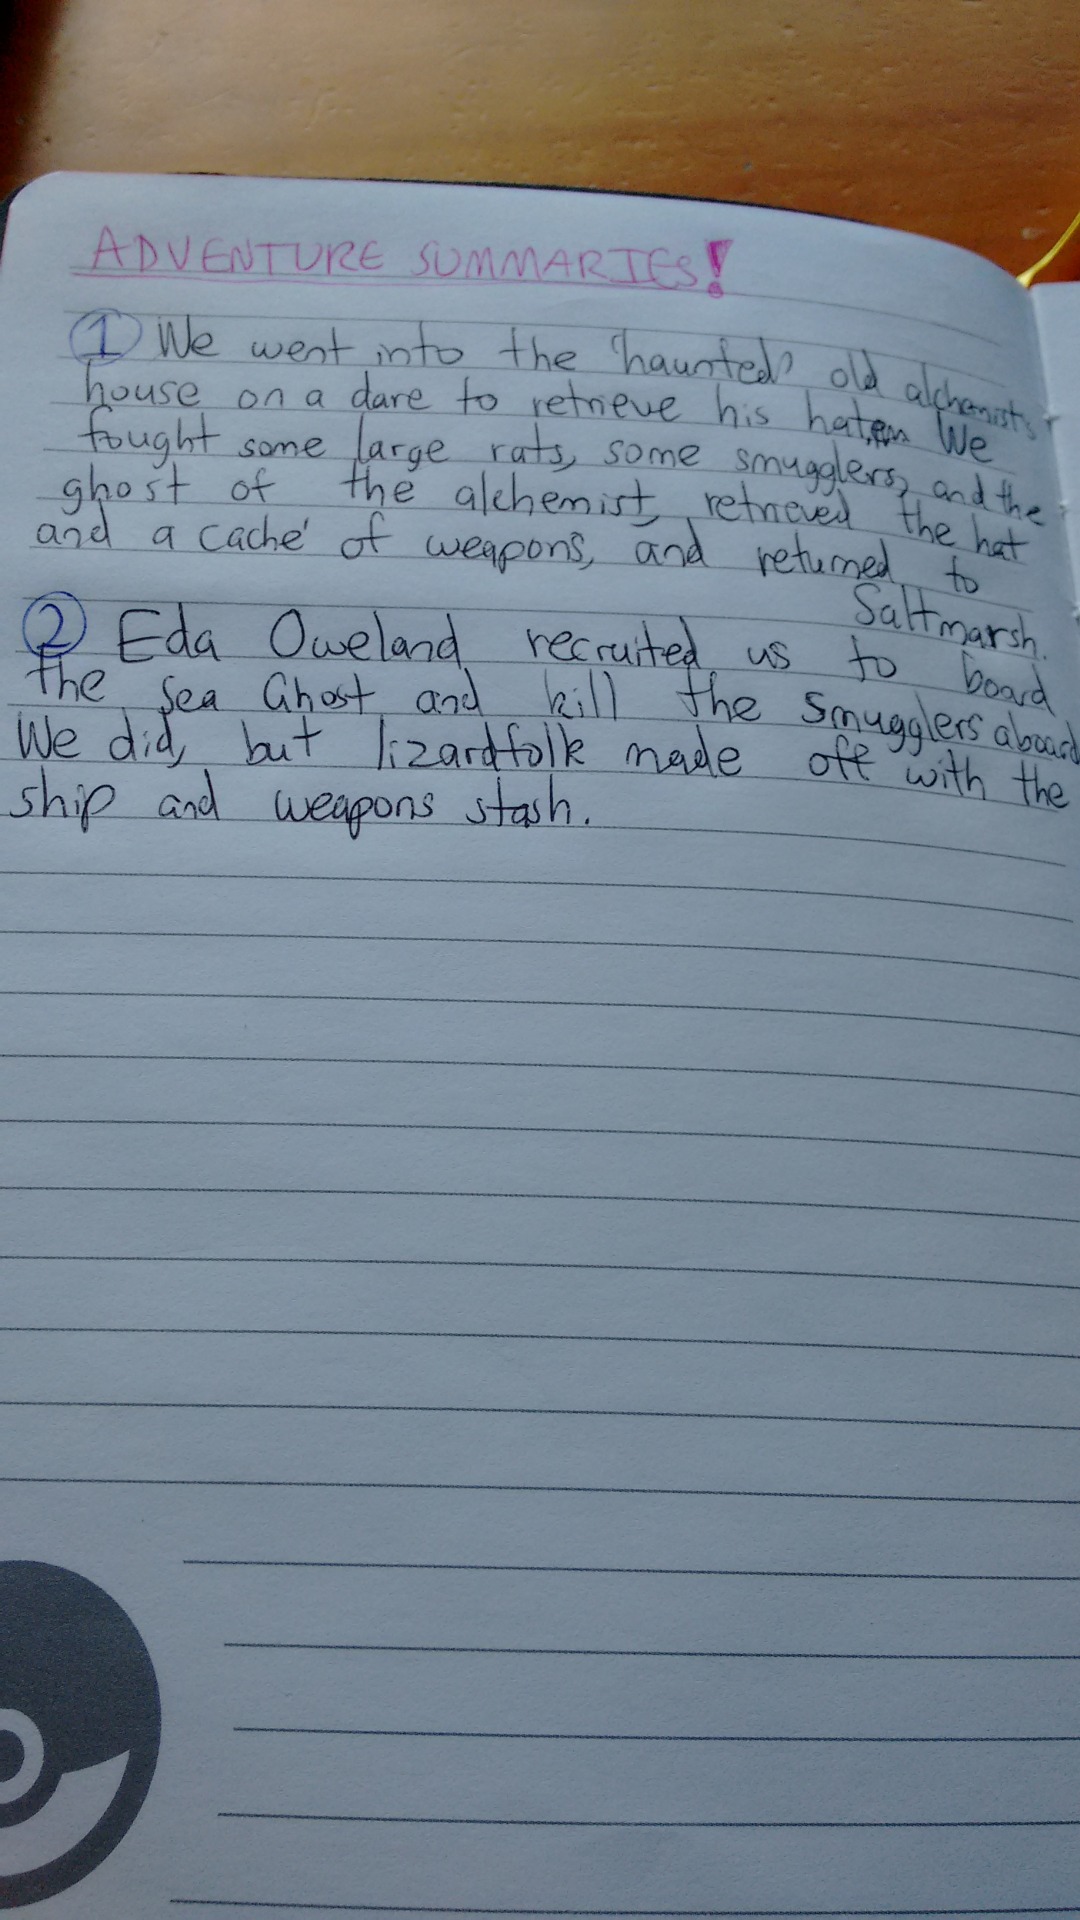 ADVENTURE SUMMARIES!
① We went into the "haunted" old alchemists
house on a dare to retrieve his hat. We
fought some large rats, some smugglers, and the
ghost of the alchemist, retrieved the hat
and a caché of weapons, and returned to
Saltmarsh.
② Eda Oweland recruited us to board
the Sea Ghost and kill the smugglers aboard
We did, but lizardfolk made off with the
ship and weapons stash.